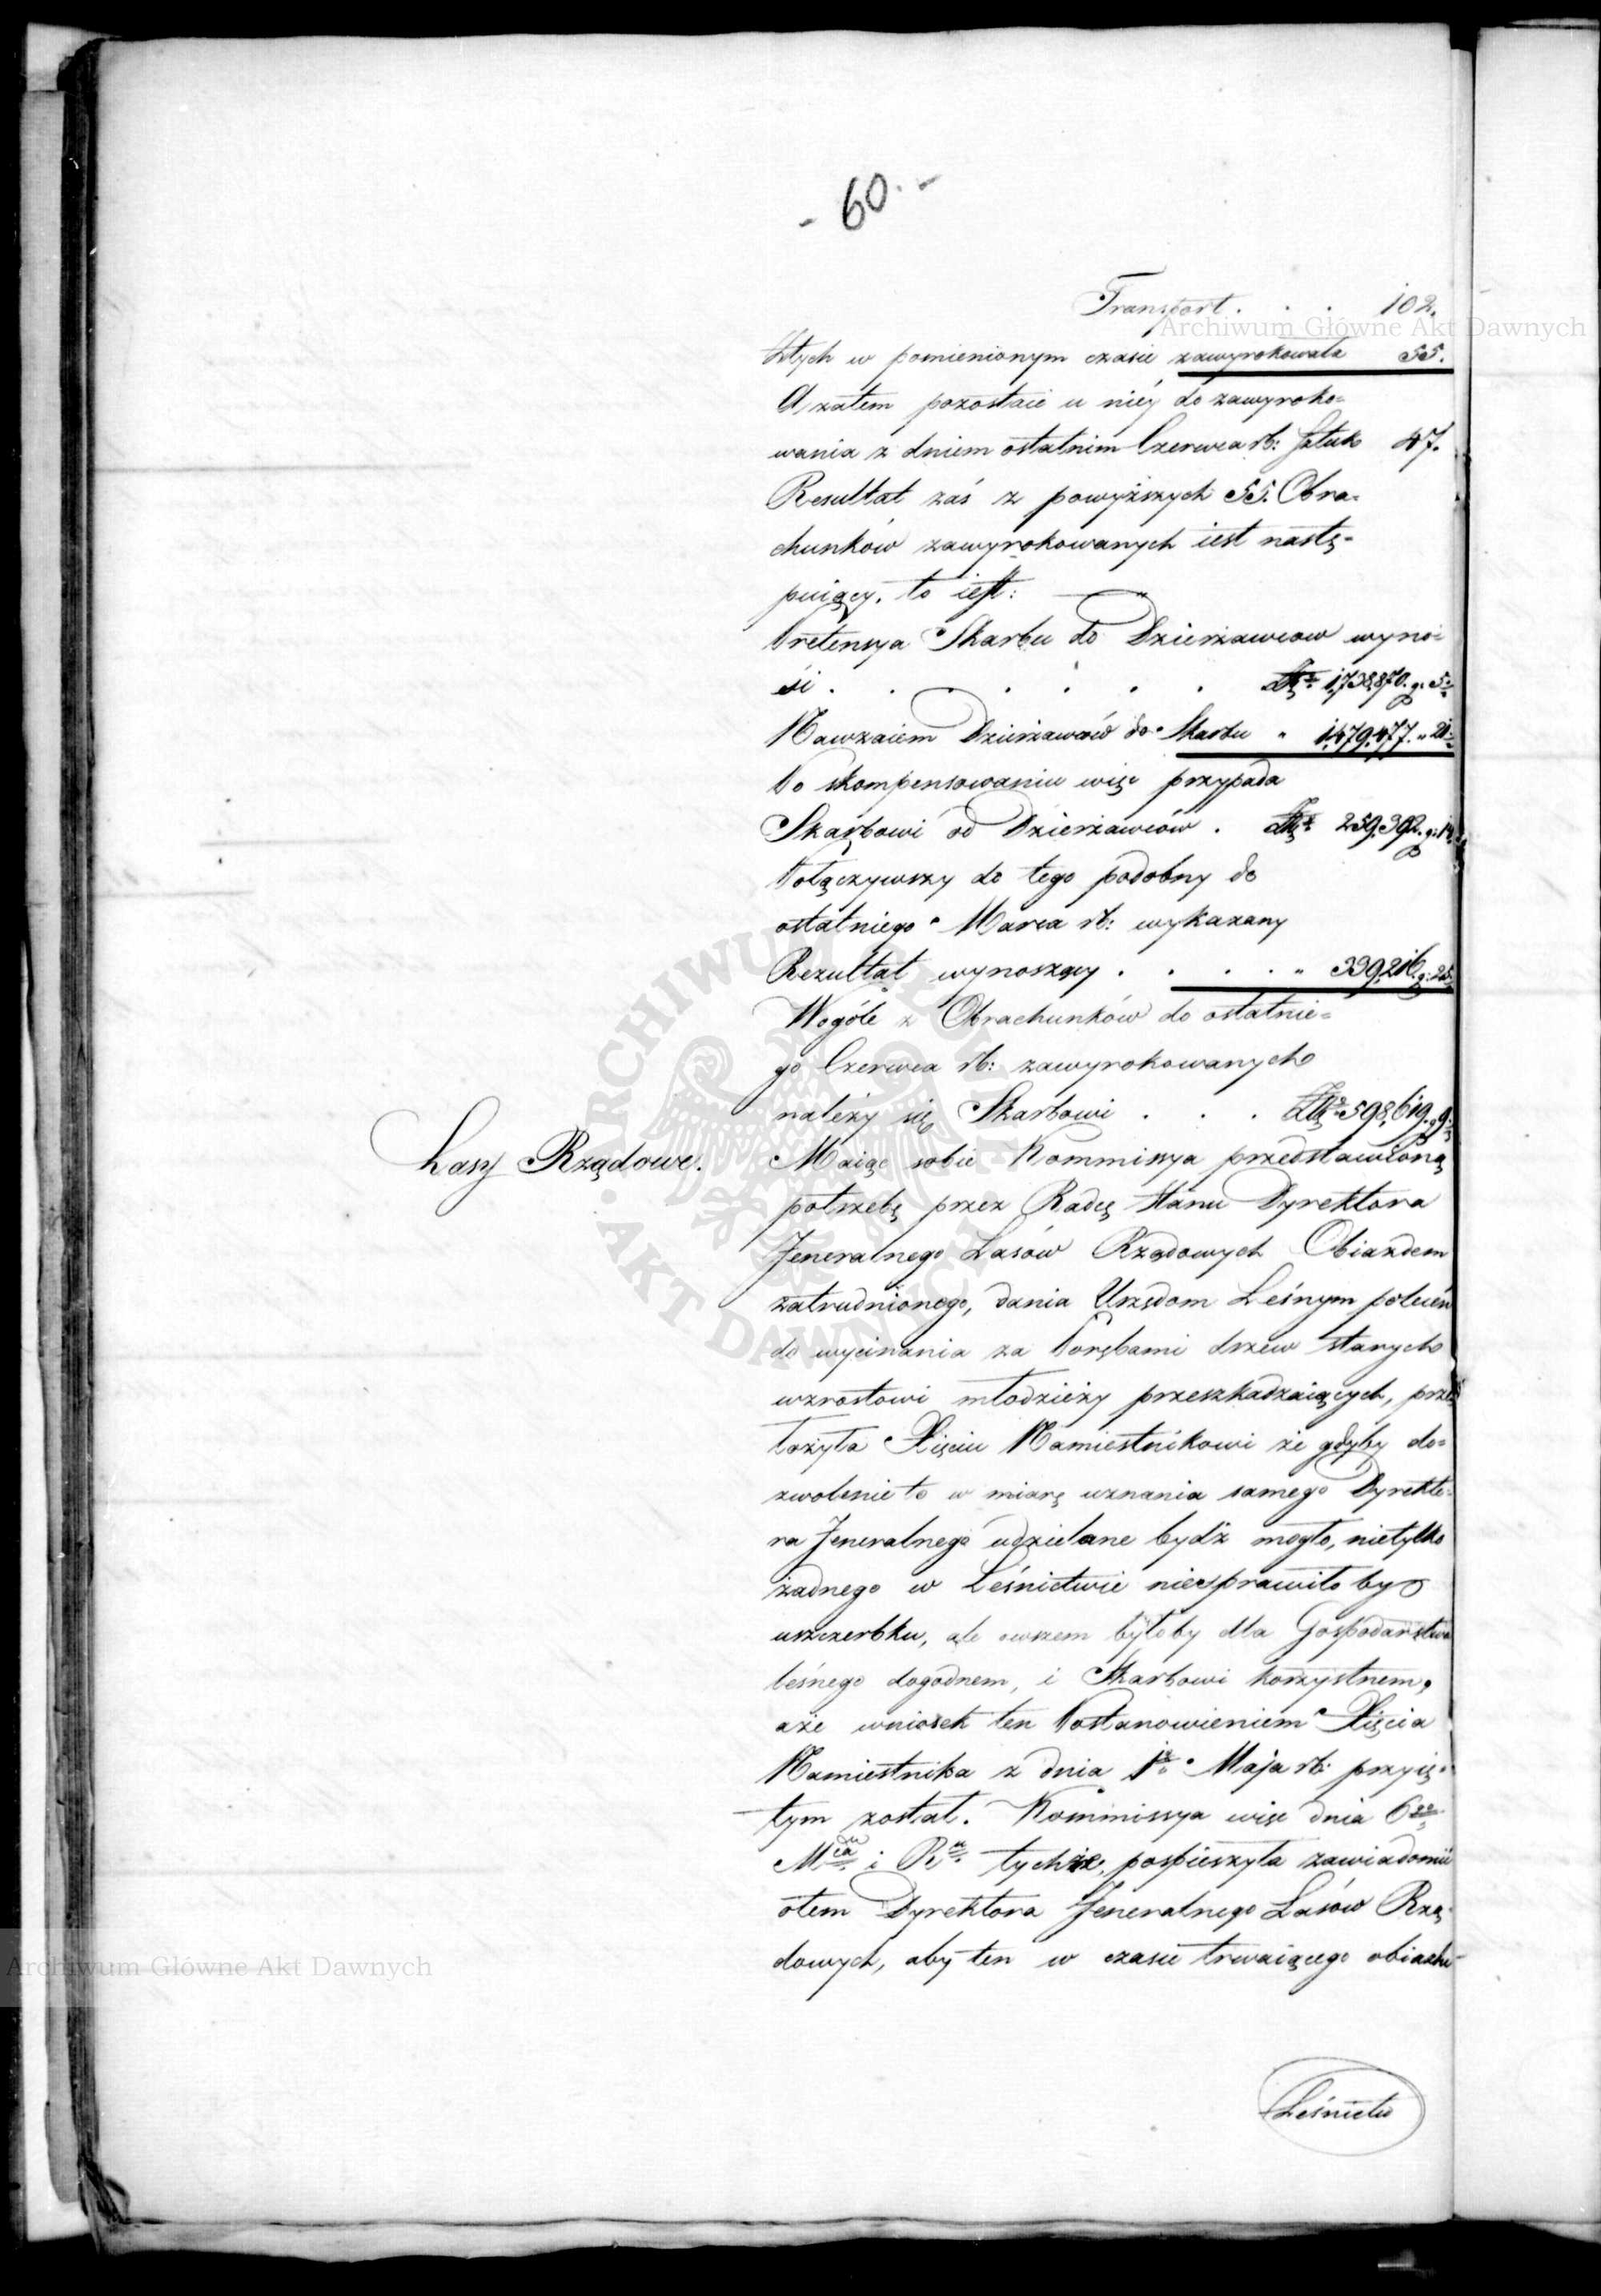 - 60. -
Transport . . . 102.
Ztych w pomienionym czasie zawyrokowała 55.
A zatem pozostaie u niéy do zawyroko=
wania z dniem ostatnim Czerwca rb: sztuk 47.
Resultat zaś z powyższych 55. Obra=
chunków zawyrokowanych iest nastę=
puiący, to iest:
Pretensya Skarbu do Dzierżawców wyno=
si . . . . . . . 1,738,870. g. 5.
Nawzaiem Dzierżawców do Skarbu " 1,479,477. " 21.
Po skompensowaniu więc przypada
Skarbowi od Dzierżawców . 259,392. g. 14.
Połączywszy do tego podobny do
ostatniego Marca rb: wykazany
Rezultat wynoszący . . . . . " 339,216. g. 25.
Wogóle z Obrachunków do ostatnie=
go Czerwca rb: zawyrokowanych
należy się Skarbowi . . . 598,619. g. 9.
Lasy Rządowe.
Maiąc sobie Kommissya przedstawioną
potrzebę przez Radcę Stanu Dyrektora
Jeneralnego Lasów Rządowych Obiazdem
zatrudnionego, dania Urzędom Leśnym poleceń
do wycinania za Porębami drzew starych
wzrostowi młodzieży przeszkadzaiących, przed
łożyła Xięciu Namiestnikowi że gdyby do=
zwolenie to w miarę uznania samego Dyrekto=
ra Jeneralnego udzielane bydź mogło, nietylko
żadnego w Leśnictwie niesprawiło by
uszczerbku, ale owszem byłoby dla Gospodarstwa
leśnego dogodnem, i Skarbowi korzystnem,
aże wniosek ten Postanowieniem Xięcia
Namiestnika z dnia 1º Maja rb: przyię=
tym został. Kommissya więc dnia 6go
Mca i Ru tychże, pospieszyła zawiadomić
otem Dyrektora Jeneralnego Lasów Rzą=
dowych, aby ten w czasie trwaiącego obiazdu
Leśnictw
Archiwum Główne Akt Dawnych
ARCHIWUM GŁÓWNE AKT DAWNYCH
Archiwum Główne Akt Dawnych